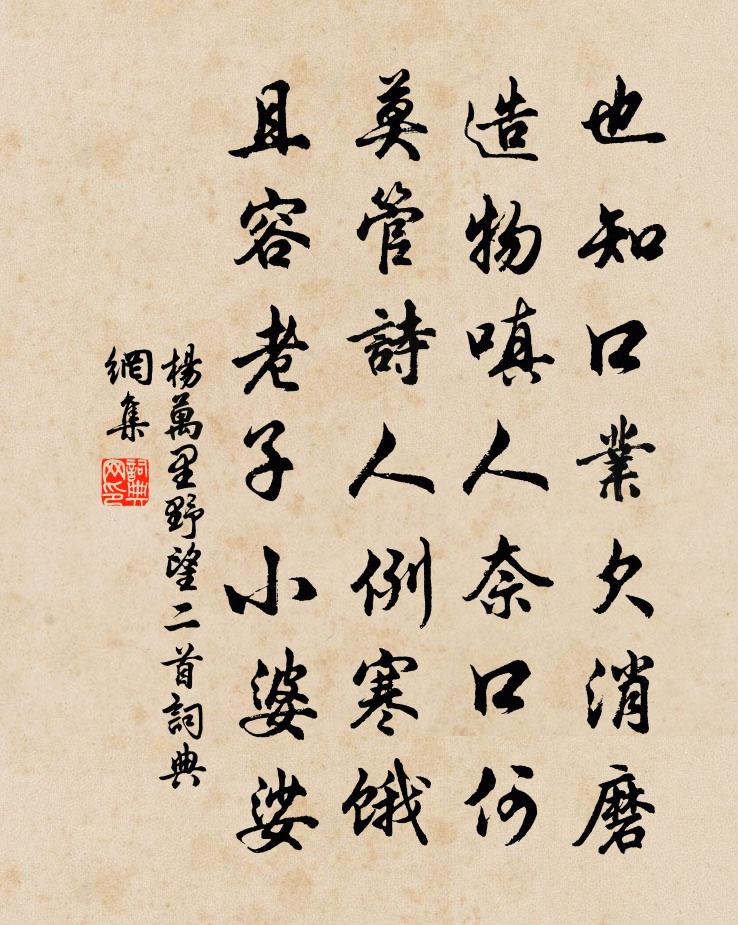 也知口業欠消磨
造物嗔人奈口何
莫管詩人例寒餓
且容老子小婆娑
楊萬里野望二首詞典
網集
詞典
网印